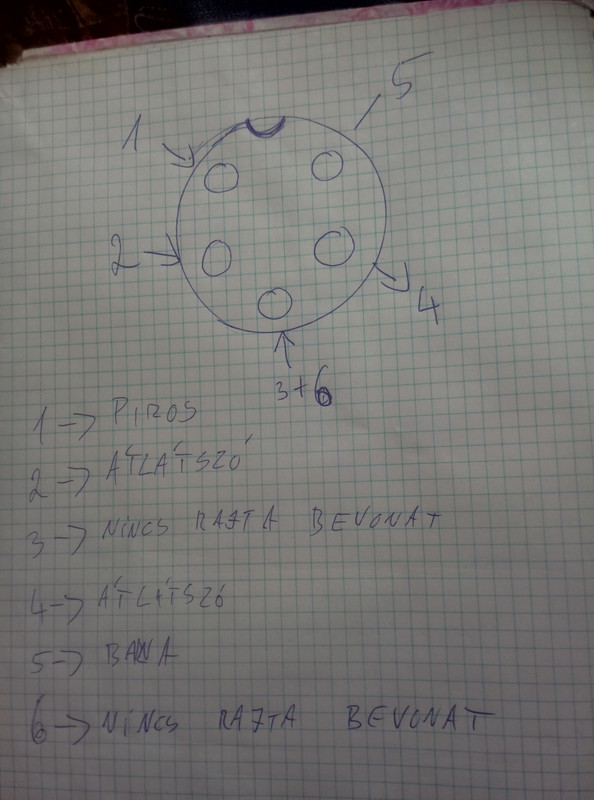 1
5
2
4
3+6
1 → PIROS
2 → ÁTLÁTSZÓ
3 → NINCS RAJTA BEVONAT
4 → ÁTLÁTSZÓ
5 →
6 → NINCS RAJTA BEVONAT